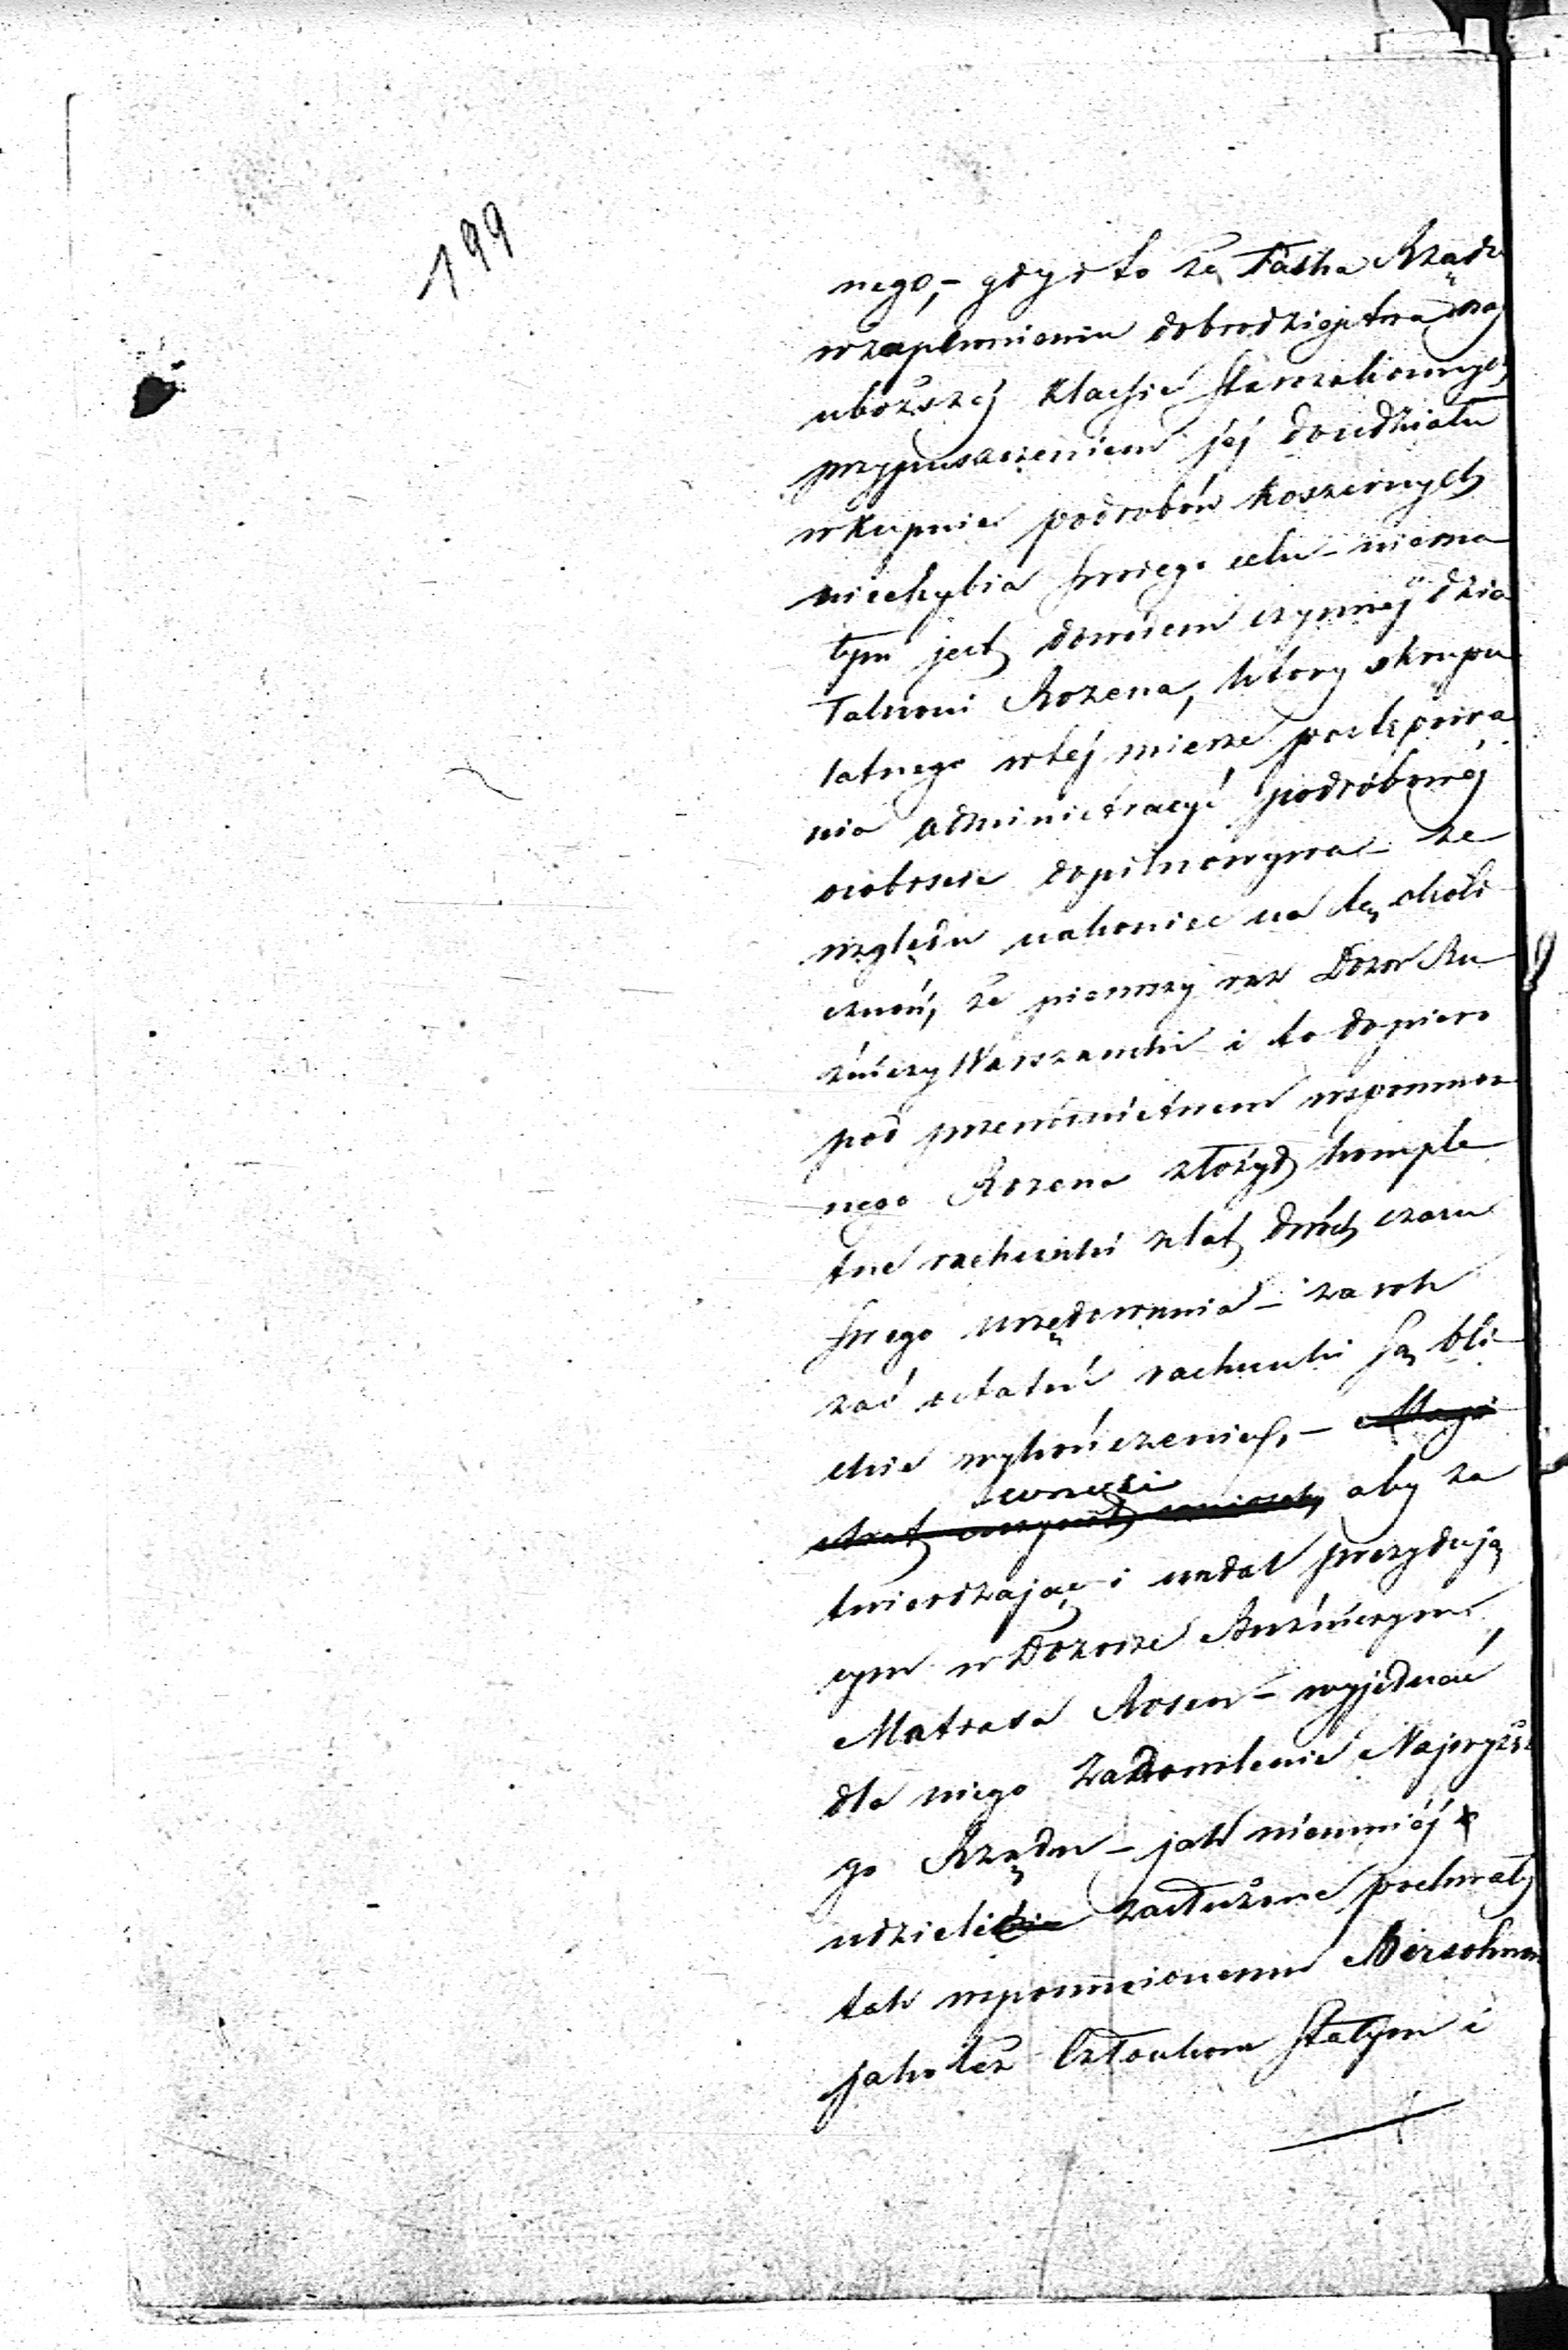 199
nego,- gdyż to że Łaska Rządu
w zapewnieniu dobrodziejstwa naj
uboższéj klassie Starozakonnych
przypuszczeniem jéj do udziału
w kupnie podrobów koszernych
niechybia swoiego celu - niema
tym jest dowodem czynnéj dzia
łalności Rozena, który skrupu
latnego w téj mierze postępowa
nia administracyi podróbowéj
osobiście dopilnowywa - ze
względu nakoniec na tę okoli
czność, że pierwszy raz Dozór Bu
żniczy Warszawski i to dopiero
pod przewodnictwem wspomnio
nego Rozena złożył komple
tne rachunki z lat dwóch czasu
swego urzędowania - za rok
zaś ostatni rachunki są bli
skie wykończenia, - Magi
strat wnosi
aby za
twierdzając i nadal prezydują
cym w Dozorze Bużniczym
Matiasa Rosen - wyjednać
dla niego zadowolenie Najwyższe
go Rządu - jak niemniéj
udzielić zasłużone pochwały
tak wspomnionemu Bersohnowi
jako też Członkom Stałym i